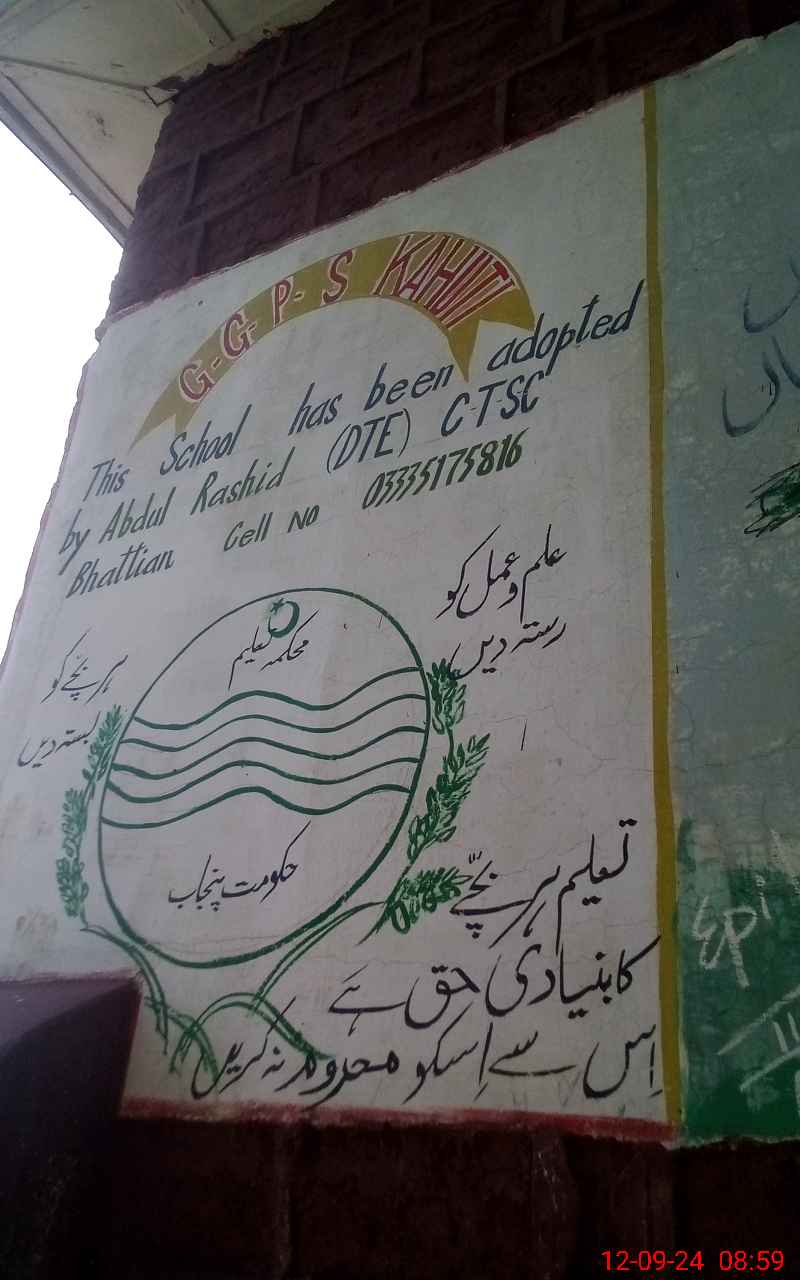 G-G-P-S KAHUTI
This School has been adopted
by Abdul Rashid (DTE) C-T-SC
Bhattian Cell No 03335175816
علم و عمل کو
رستہ دیں
ہر بچّے کو
بستہ دیں
محکمہ تعلیم
حکومت پنجاب
تعلیم ہر بچّے
کا بنیادی حق ہے
اِس سے اِسکو محروم نہ کریں
Epi
11
12-09-24 08:59